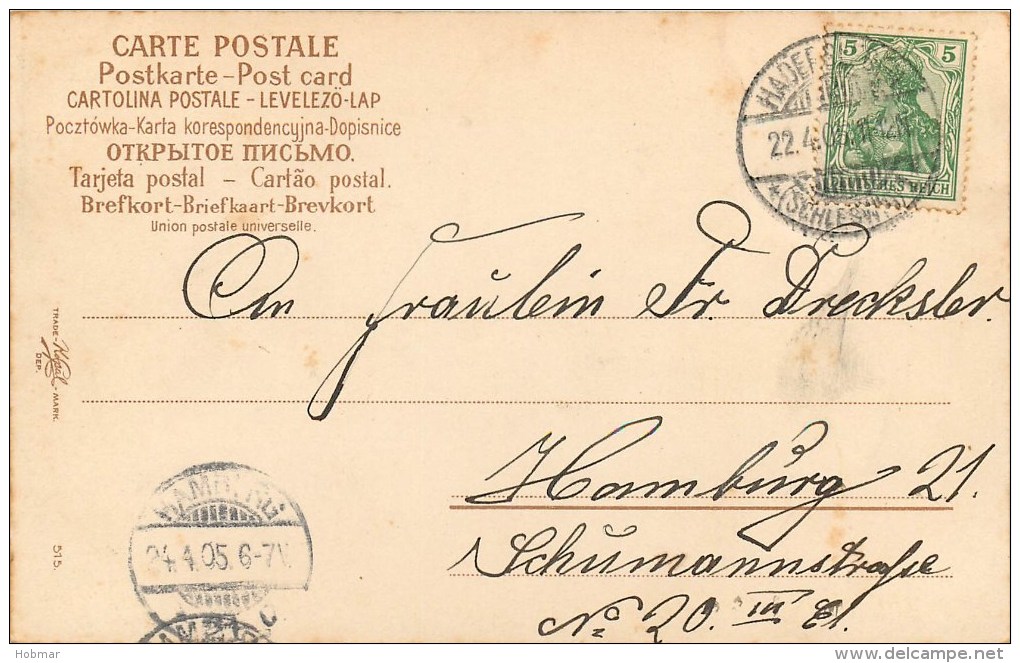 CARTE POSTALE
Postkarte-Post card
CARTOLINA POSTALE - LEVELEZÖ-LAP
Pocztówka-Karta korespondencyjna-Dopisnice
ОТКРЫТОЕ ПИСЬМО.
Tarjeta postal - Cartão postal.
Brefkort-Briefkaart-Brevkort
Union postale universelle.
5 5
22.4.05
REICH
An Fräulein Fr. Drecksler.
TRADE-
-MARK.
DEP.
Hamburg 21.
Schumannstraße
No 20. III Et.
515.
HAMBURG.
24.4.05. 6-7V.
Hobmar
delcampe.net